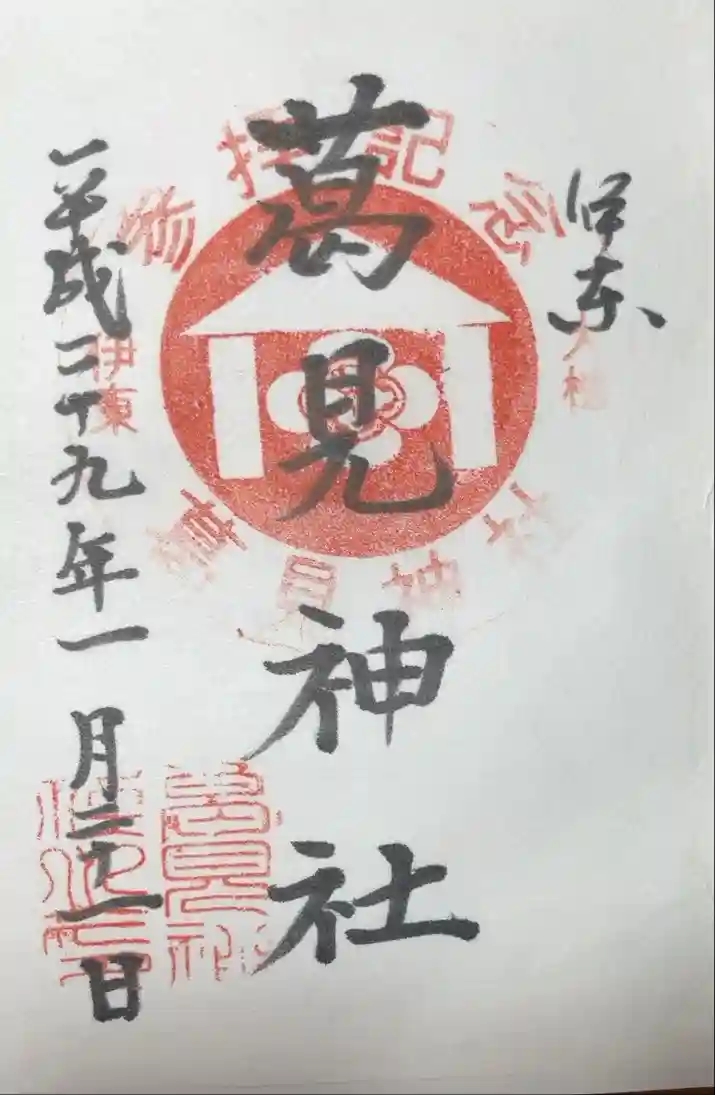 伊東
葛見神社
平成二十九年一月二十一日
参拝記念
大楠
伊東
葛見神社